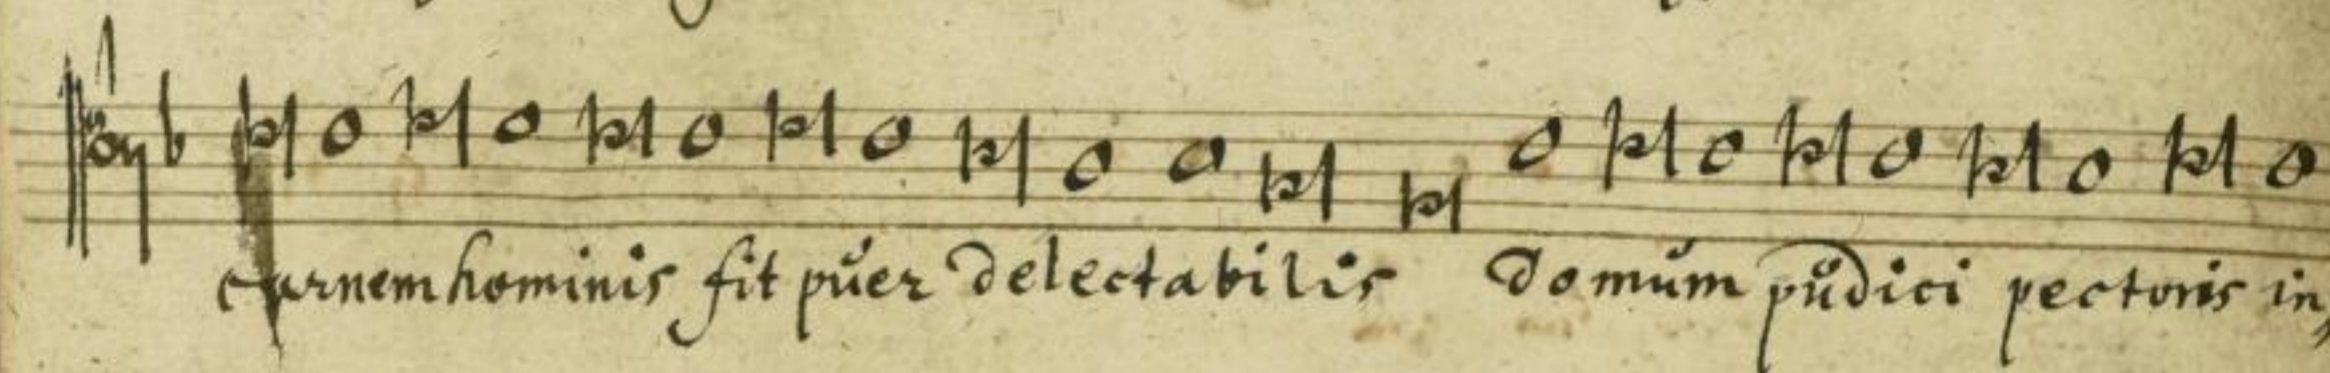 carnem hominis fit pŭer delectabilis domŭm pŭdici pectoris in,